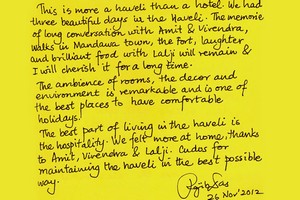 This is more a haveli than a hotel. We had
three beautiful days in the Haveli. The memorie
of long conversation with Amit & Virendra,
walks in Mandawa town, the Fort, laughter
and brilliant food with Lalji will remain &
I will cherish it for a long time.
The ambience of rooms, the decor and
environment is remarkable and is one of
the best places to have comfortable
holidays!
The best part of living in the haveli is
the hospitality. We felt more at home, thanks
to Amit, Virendra & Lalji. Cudos for
maintaining the haveli in the best possible
way.
26 Nov' 2012